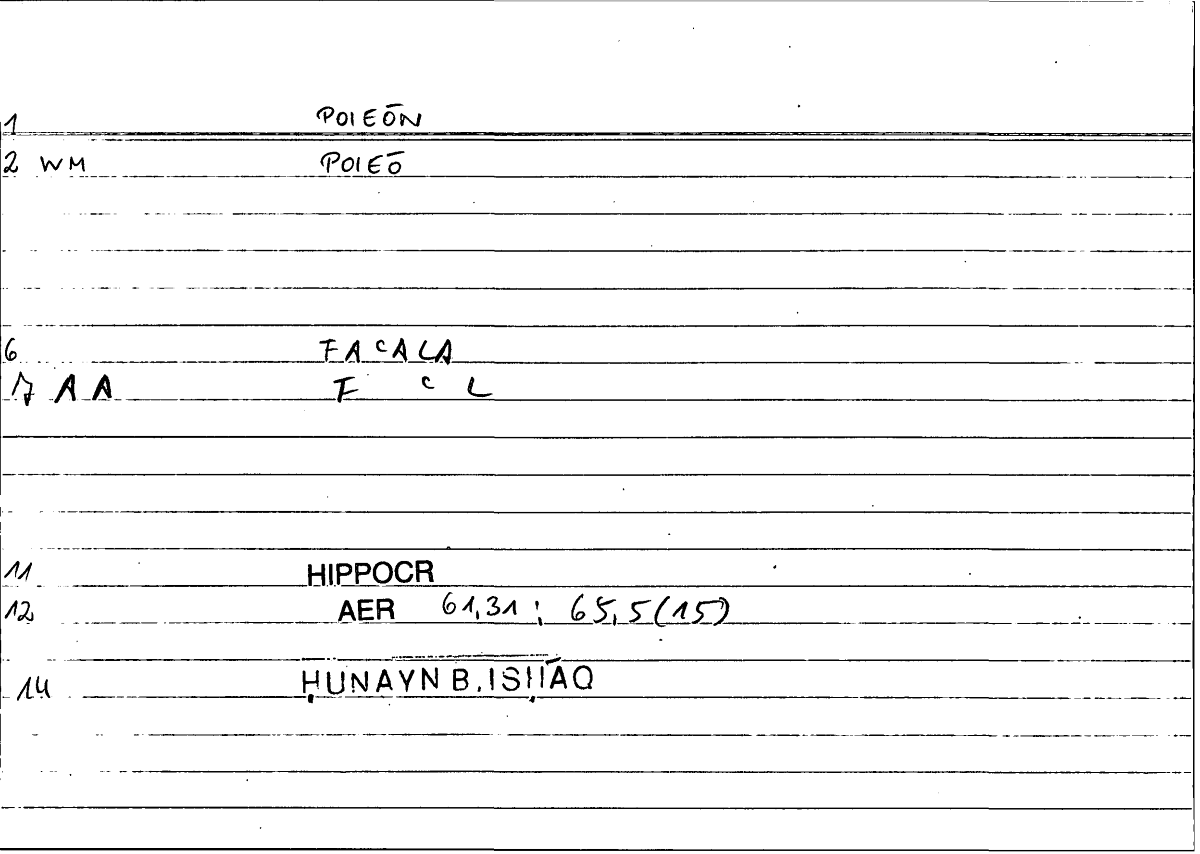 1 POIEŌN
2 WM POIEŌ
6 FAᶜALA
7 AA F ᶜ L
11 HIPPOCR
12 AER 61,31 ; 65,5(15)
14 ḤUNAYN B. ISḤĀQ